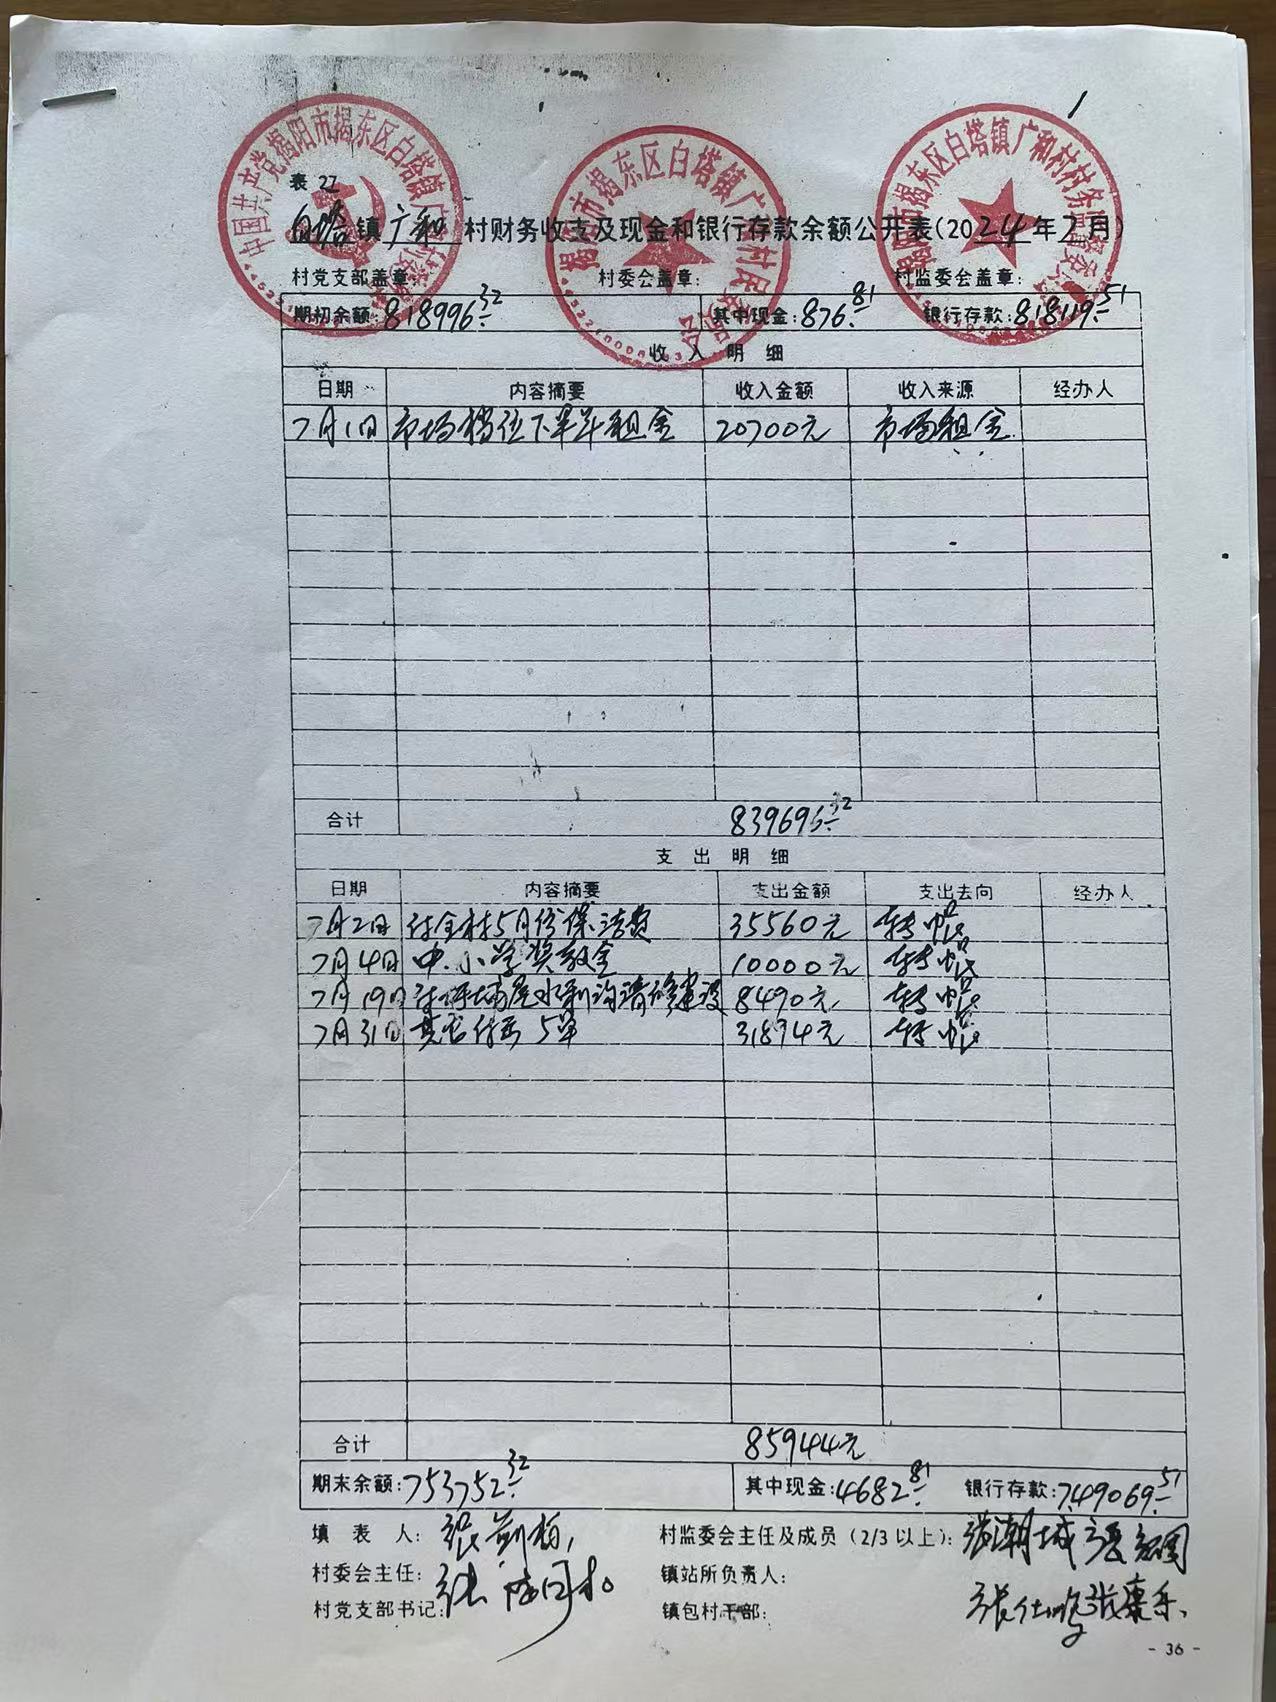 中国共产党揭阳市揭东区白塔镇广
揭东区白塔镇广
村民委员会
揭阳市揭东区白塔镇广和村村务监督委员会
表 27
白塔镇广和村财务收支及现金和银行存款余额公开表(2024年7月)
村党支部盖章: 村委会盖章: 村监委会盖章:
期初余额:818996.32 其中现金:876.81 银行存款:818119.51
收入明细
日期 内容摘要 收入金额 收入来源 经办人
7月1日 市场档位下半年租金 20700元 市场租金
合计 839696.32
支出明细
日期 内容摘要 支出金额 支出去向 经办人
7月2日 付全村5月份保洁费 35560元 转帐
7月4日 中.小学奖教金 10000元 转帐
7月19日 付埔尾水利沟清修建设 8490元 转帐
7月31日 其它付 5单 31894元 转帐
合计 85944元
期末余额:753752.32 其中现金:4682.81 银行存款:749069.51
填 表 人: 张 村监委会主任及成员(2/3以上): 张潮城 张
村委会主任: 张 镇站所负责人:
村党支部书记: 镇包村干部: 张仕鸣 张
- 36 -